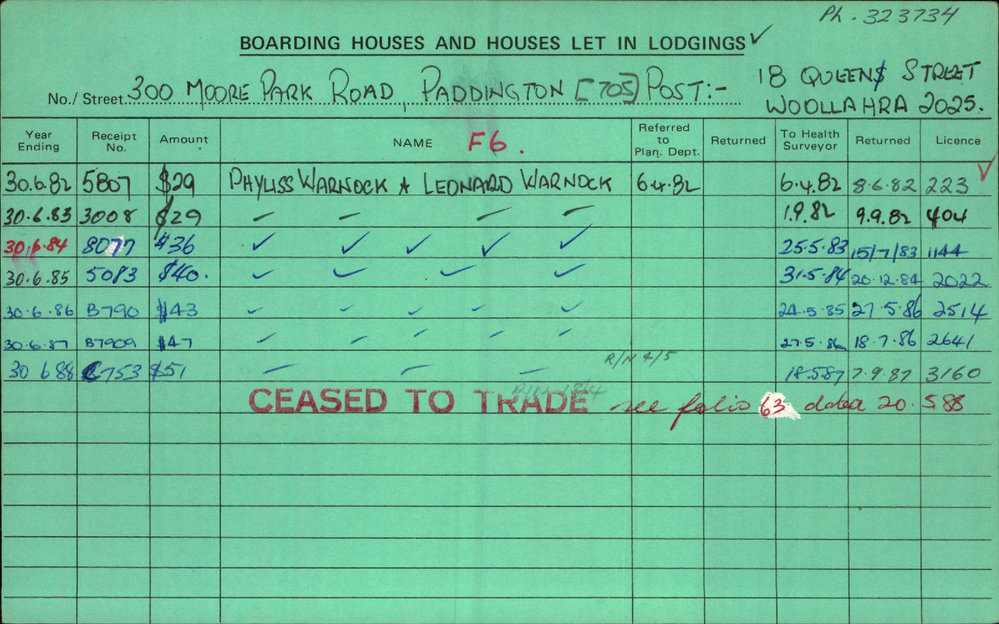 Ph. 323734
BOARDING HOUSES AND HOUSES LET IN LODGINGS ✓
No./ Street 300 MOORE PARK ROAD, PADDINGTON [705] POST:- 18 QUEENS STREET
WOOLLAHRA 2025.
Year Ending Receipt No. Amount NAME F6. Referred to Plan. Dept. Returned To Health Surveyor Returned Licence ✓
30.6.82 5807 $29 PHYLISS WARNOCK & LEONARD WARNOCK 6.4.82 6.4.82 8.6.82 223
30.6.83 3008 $29 — — — — 1.9.82 9.9.82 404
30.6.84 8077 $36 ✓ ✓ ✓ ✓ ✓ 25.5.83 15/7/83 1144
30.6.85 5083 $40. ✓ ✓ ✓ ✓ 31.5.84 20.12.84 2022
30.6.86 B790 $43 ✓ ✓ ✓ ✓ ✓ 24.5.85 27.5.86 2514
30.6.87 B7909 $47 ✓ ✓ ✓ ✓ ✓ 27.5.86 18.7.86 2641
R/N 4/5
30 6 88 C753 $51 — — — 18.5.87 7.9.87 3160
CEASED TO TRADE see folio 63 dated 20.5.88